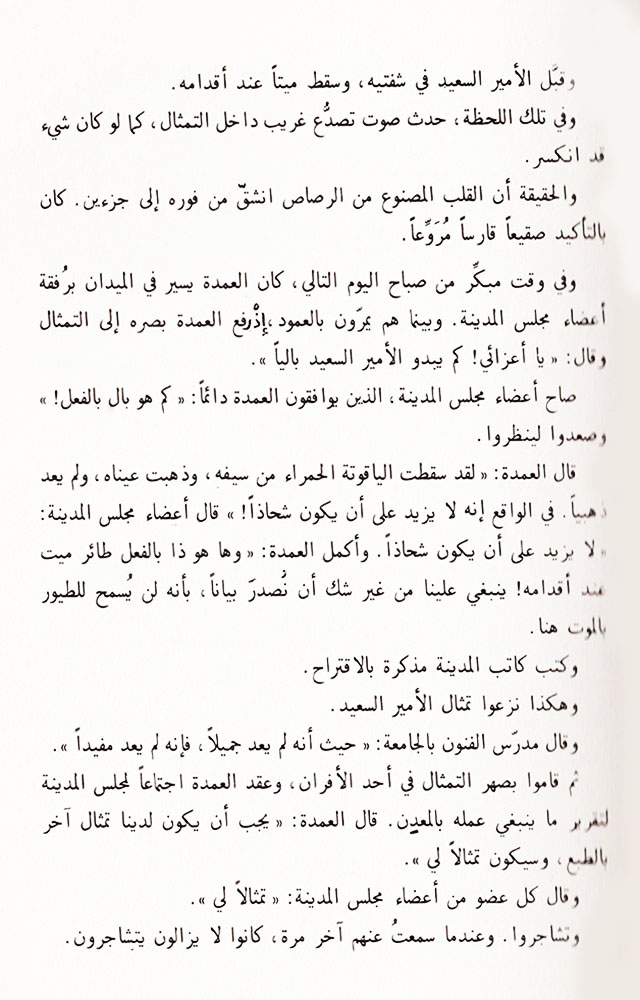 وقبَّل الأمير السعيد في شفتيه، وسقط ميتاً عند أقدامه.
وفي تلك اللحظة، حدث صوت تصدُّع غريب داخل التمثال، كما لو كان شيء
قد انكسر.
والحقيقة أن القلب المصنوع من الرصاص انشقّ من فوره إلى جزءين. كان
بالتأكيد صقيعاً قارساً مُرَوِّعاً.
وفي وقت مبكِّر من صباح اليوم التالي، كان العمدة يسير في الميدان برُفقة
أعضاء مجلس المدينة. وبينما هم يمرّون بالعمود، إذْ رفع العمدة بصره إلى التمثال
وقال: « يا أعزائي! كم يبدو الأمير السعيد بالياً ».
صاح أعضاء مجلس المدينة، الذين يوافقون العمدة دائماً: « كم هو بال بالفعل! »
وصعدوا لينظروا.
قال العمدة: « لقد سقطت الياقوتة الحمراء من سيفه، وذهبت عيناه، ولم يعد
ذهبياً. في الواقع إنه لا يزيد على أن يكون شحاذاً! » قال أعضاء مجلس المدينة:
« لا يزيد على أن يكون شحاذاً. وأكمل العمدة: « وها هو ذا بالفعل طائر ميت
عند أقدامه! ينبغي علينا من غير شك أن نُصدرَ بياناً، بأنه لن يُسمح للطيور
بالموت هنا.
وكتب كاتب المدينة مذكرة بالاقتراح.
وهكذا نزعوا تمثال الأمير السعيد.
وقال مدرّس الفنون بالجامعة: « حيث أنه لم يعد جميلاً، فإنه لم يعد مفيداً ».
ثم قاموا بصهر التمثال في أحد الأفران، وعقد العمدة اجتماعاً لمجلس المدينة
لتقرير ما ينبغي عمله بالمعدن. قال العمدة: « يجب أن يكون لدينا تمثال آخر
بالطبع، وسيكون تمثالاً لي ».
وقال كل عضو من أعضاء مجلس المدينة: « تمثالاً لي ».
وتشاجروا. وعندما سمعتُ عنهم آخر مرة، كانوا لا يزالون يتشاجرون.